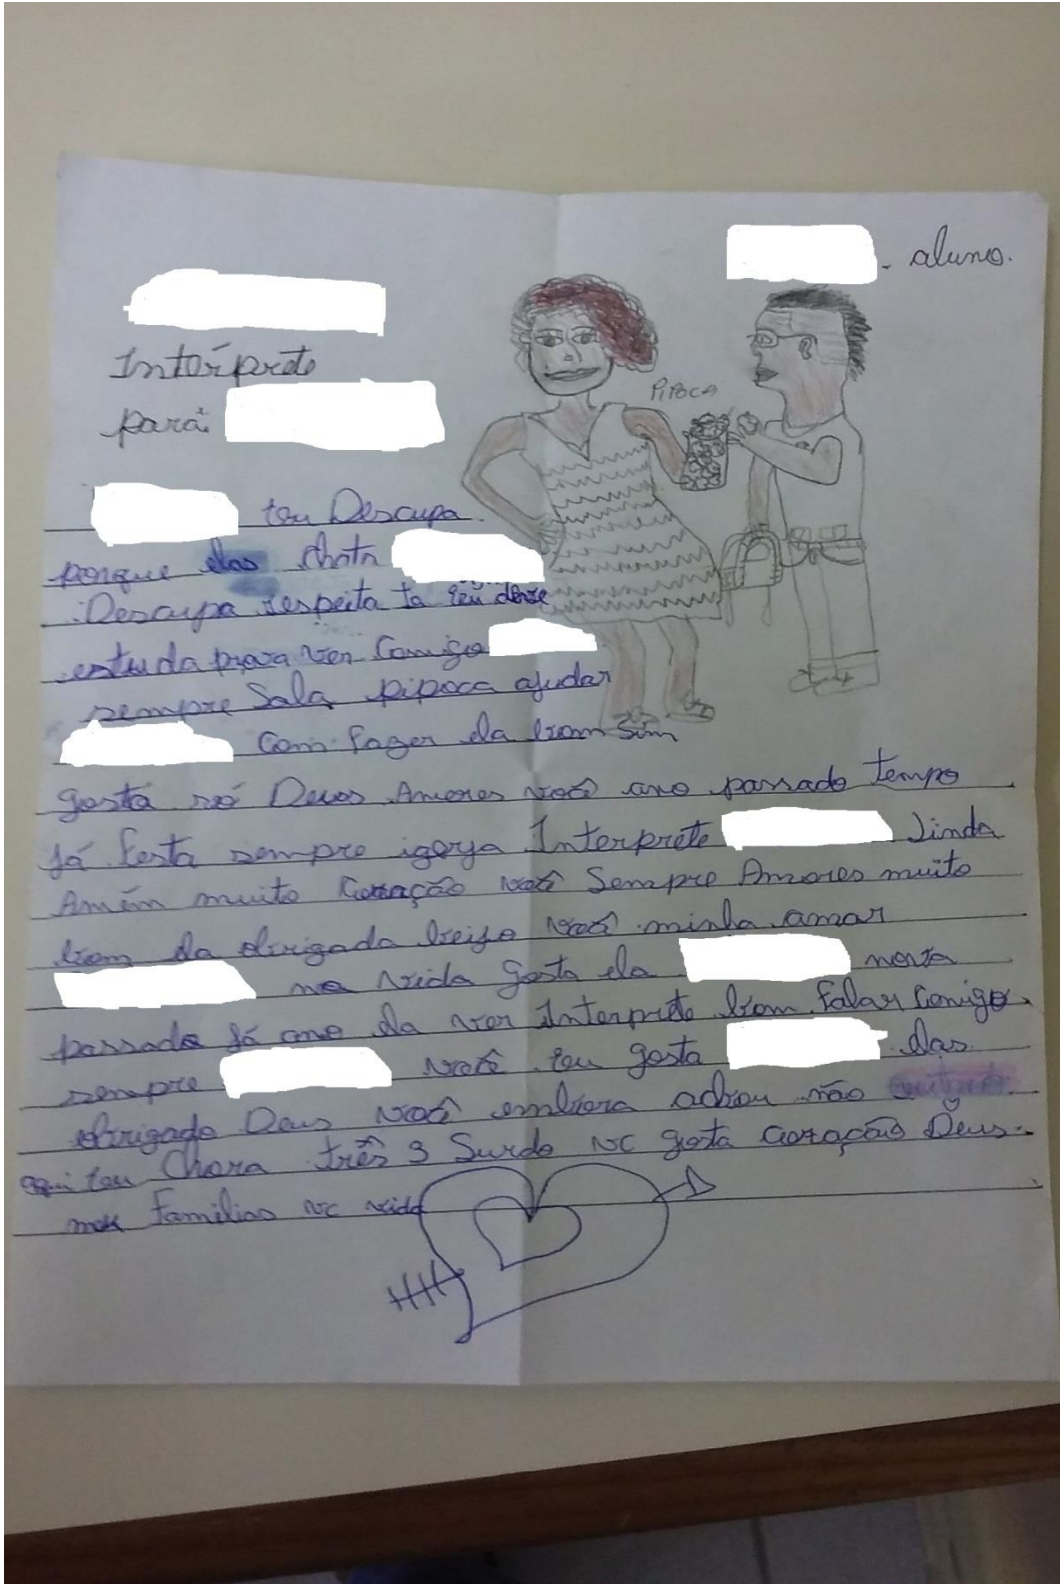 - aluno.
Intérprete
para
PIPOCA
teu Descupa
porque das chata
Descupa respeita ta teu
estuda prova ver Comigo
sempre Sala pipoca ajudar
Com fazer da bom Sim
gosta só Deus Amores você ano passado tempo
já festa sempre igerja Interprete Linda
Amém muito Coração você Sempre Amores muito
bom da obrigada beijo você minha amar
na vida gosta da nova
passada já ano da ver Interprete bom falar Comigo
sempre você teu gosta das
obrigado Deus você embora não
teu Chora três 3 Surdo vc gosta Coração Deus.
Familias vc vida